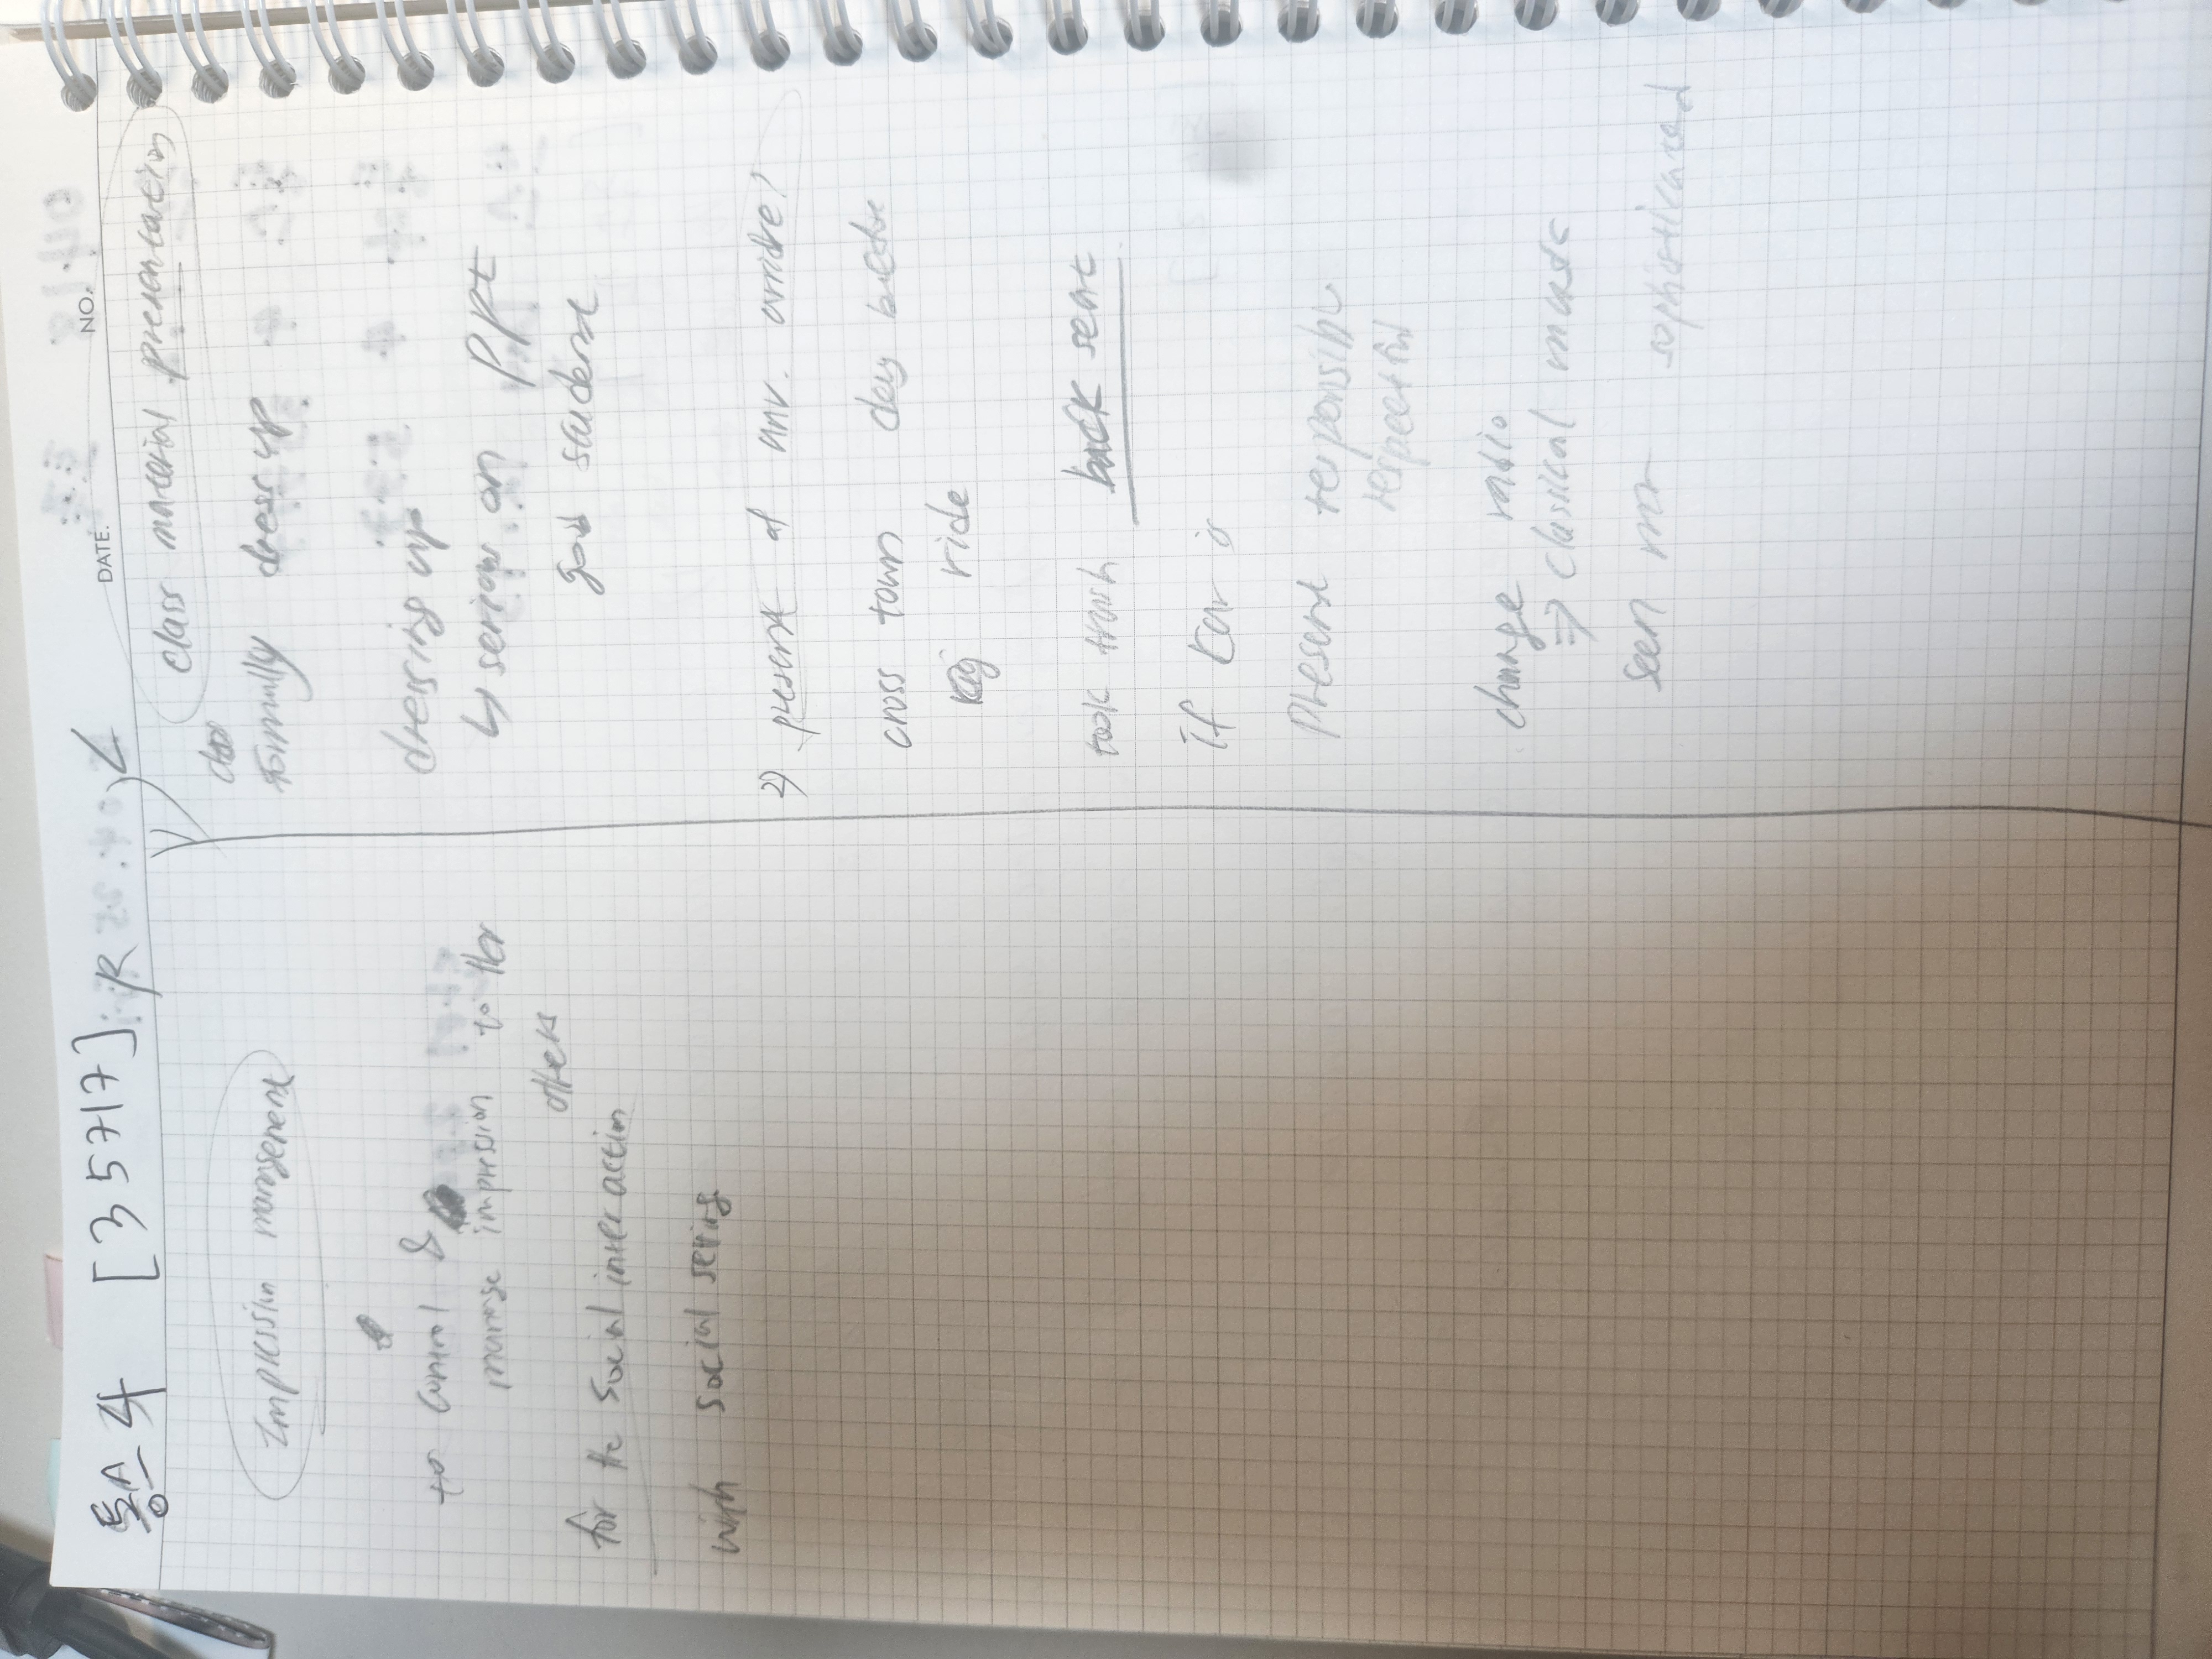 통스 4 [35717] R L
DATE.
NO.
Impression
to control &
manage impression to the
others
for the social interaction
with social setting
class material presentation
formally dress up
dressing up
↳ serious on PPt
good student
2) present at
cross town day before
ride
took trash back seat
if car is
Present responsible
respectful
change radio
⇒ classical
seen more sophisticated